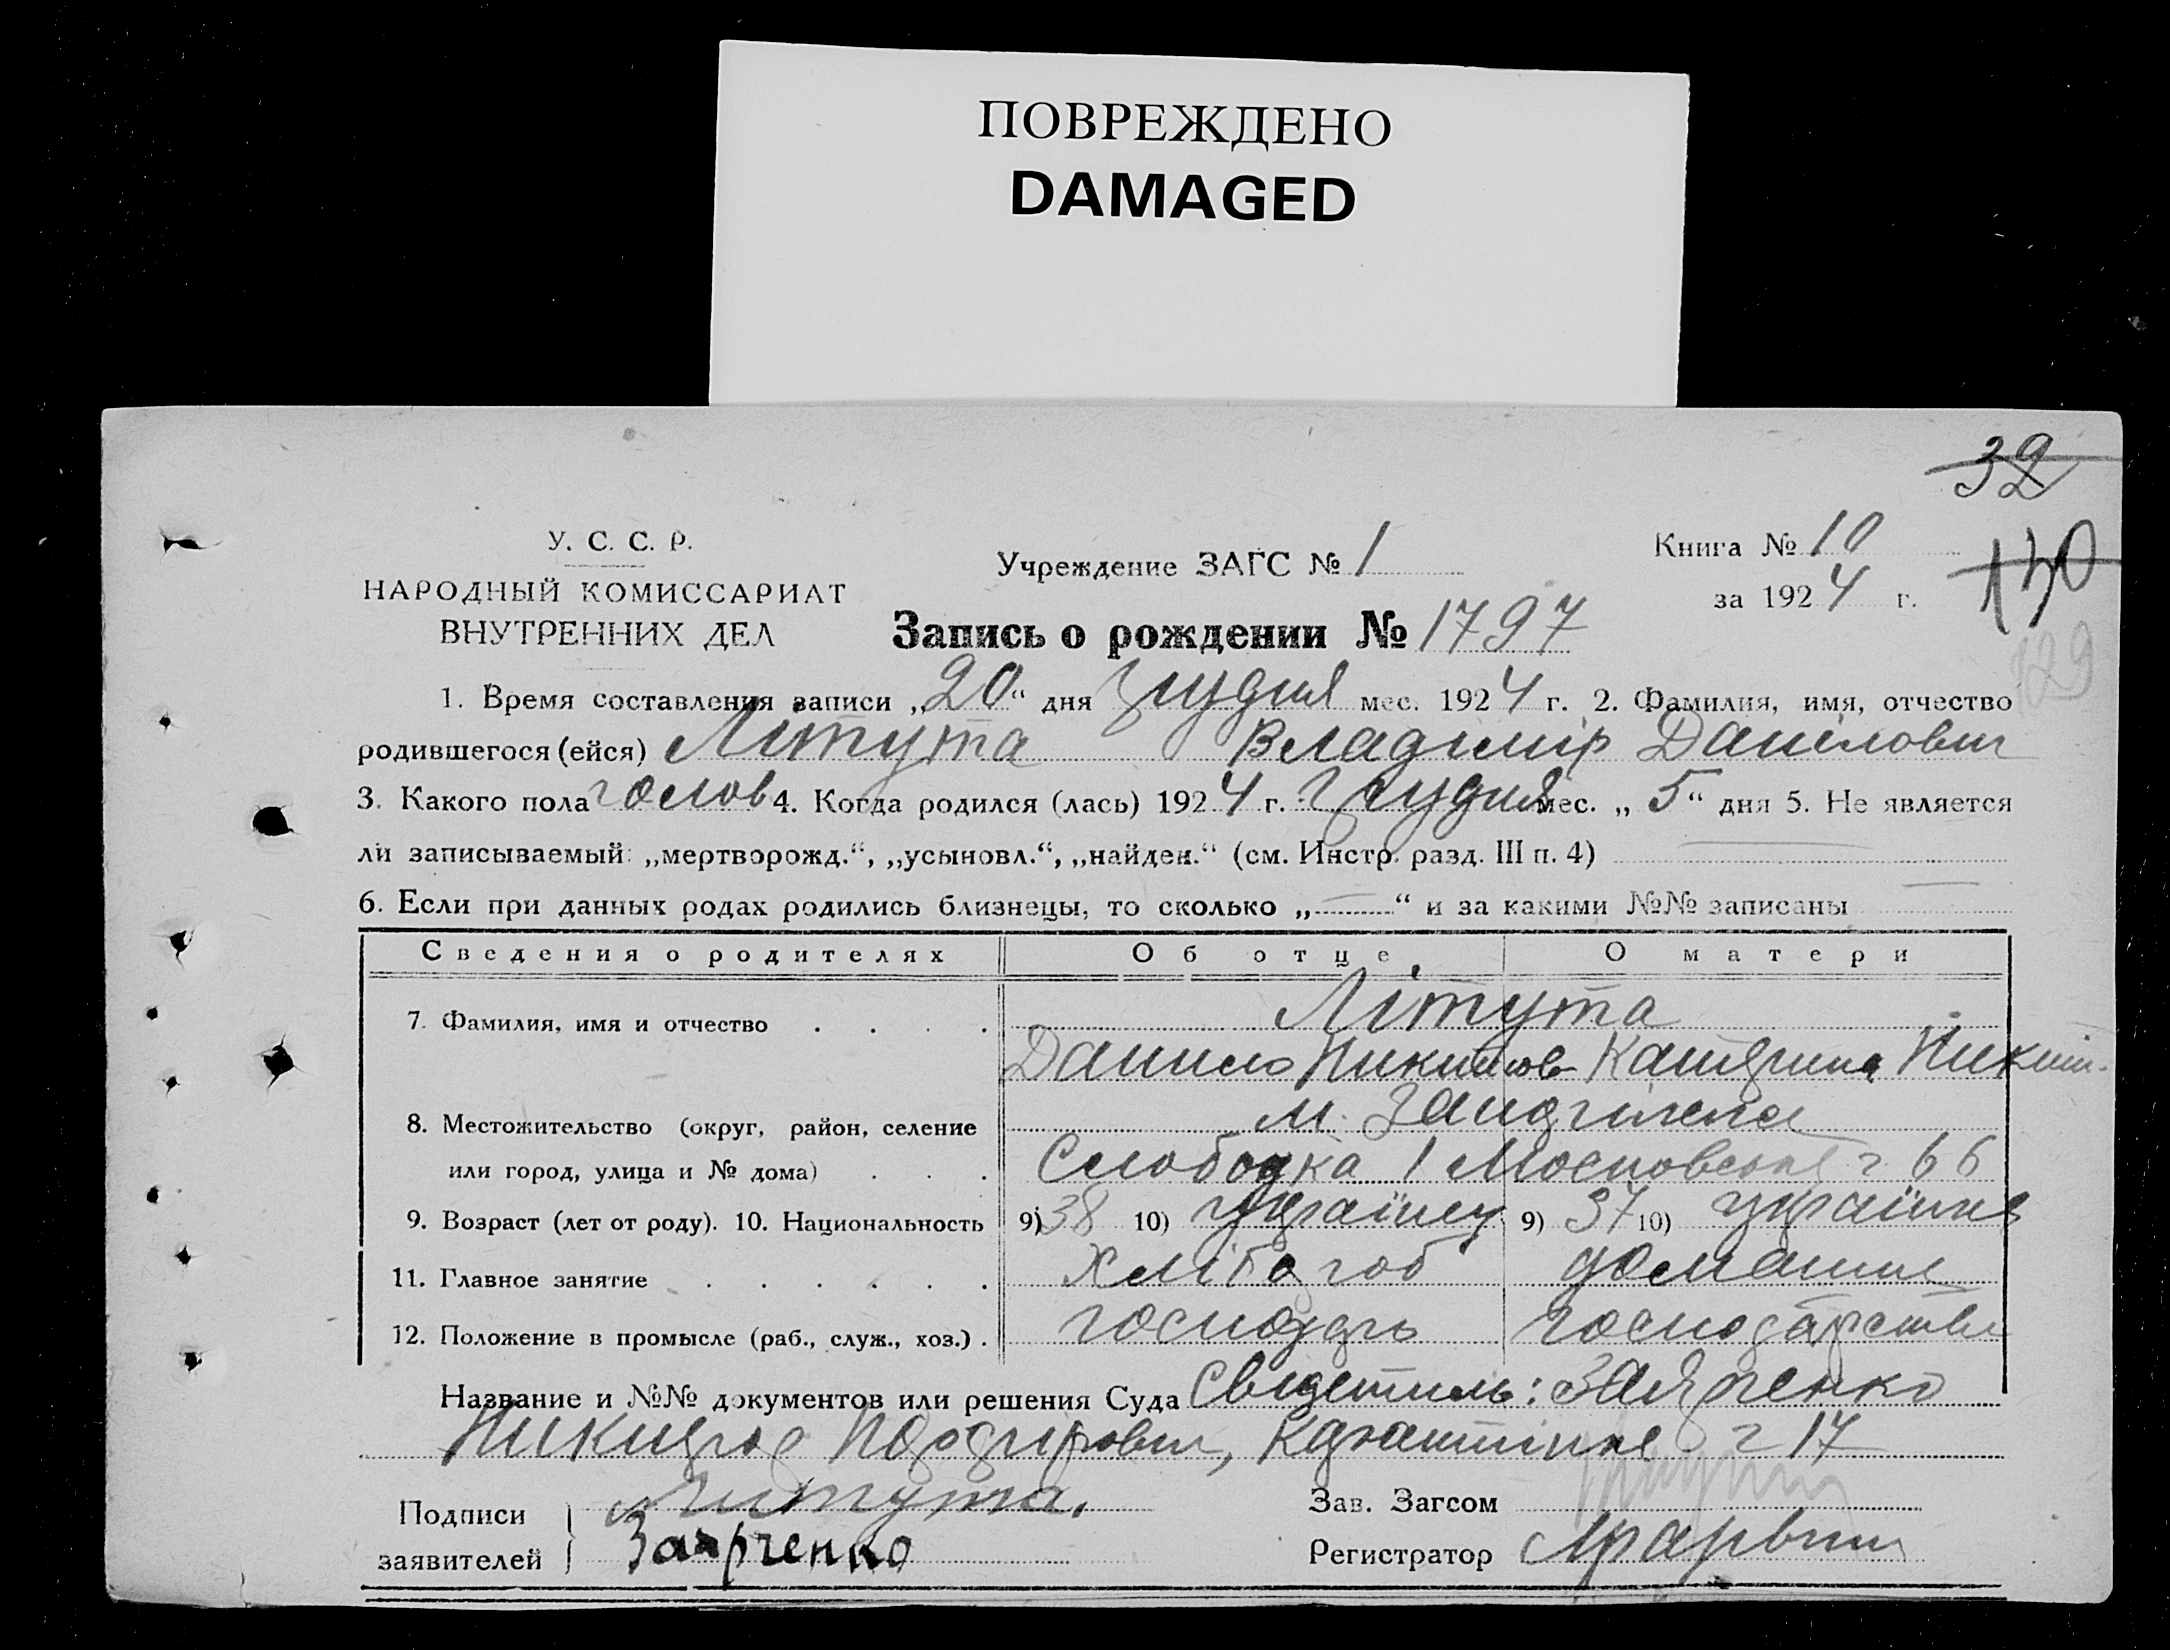 ПОВРЕЖДЕНО
DAMAGED
32
У. С. С. Р.
НАРОДНЫЙ КОМИССАРИАТ
ВНУТРЕННИХ ДЕЛ
Учреждение ЗАГС № 1
Книга № 10
за 1924 г.
130
129
Запись о рождении № 1797
1. Время составления записи „20“ дня грудня мес. 1924 г. 2. Фамилия, имя, отчество
родившегося (ейся) Літута Владімір Данілович
3. Какого пола голов 4. Когда родился (лась) 1924 г. грудня мес. „5“ дня 5. Не является
ли записываемый: „мертворожд.“, „усыновл.“, „найден.“ (см. Инстр. разд. III п. 4)
6. Если при данных родах родились близнецы, то сколько „—“ и за какими №№ записаны —
Сведения о родителях Об отце О матери
7. Фамилия, имя и отчество Літута
Данило Никитов Катерина Никит.
8. Местожительство (округ, район, селение
или город, улица и № дома) Слободка 1 Московская 66
9. Возраст (лет от роду). 10. Национальность 9) 38 10) українец 9) 37 10) українка
11. Главное занятие Хлібороб домашнє
12. Положение в промысле (раб., служ., хоз.) господарь господарство
Название и №№ документов или решения Суда Свідетиль: Заярченко
17
Подписи заявителей Литута.
Заярченко
Зав. Загсом
Регистратор